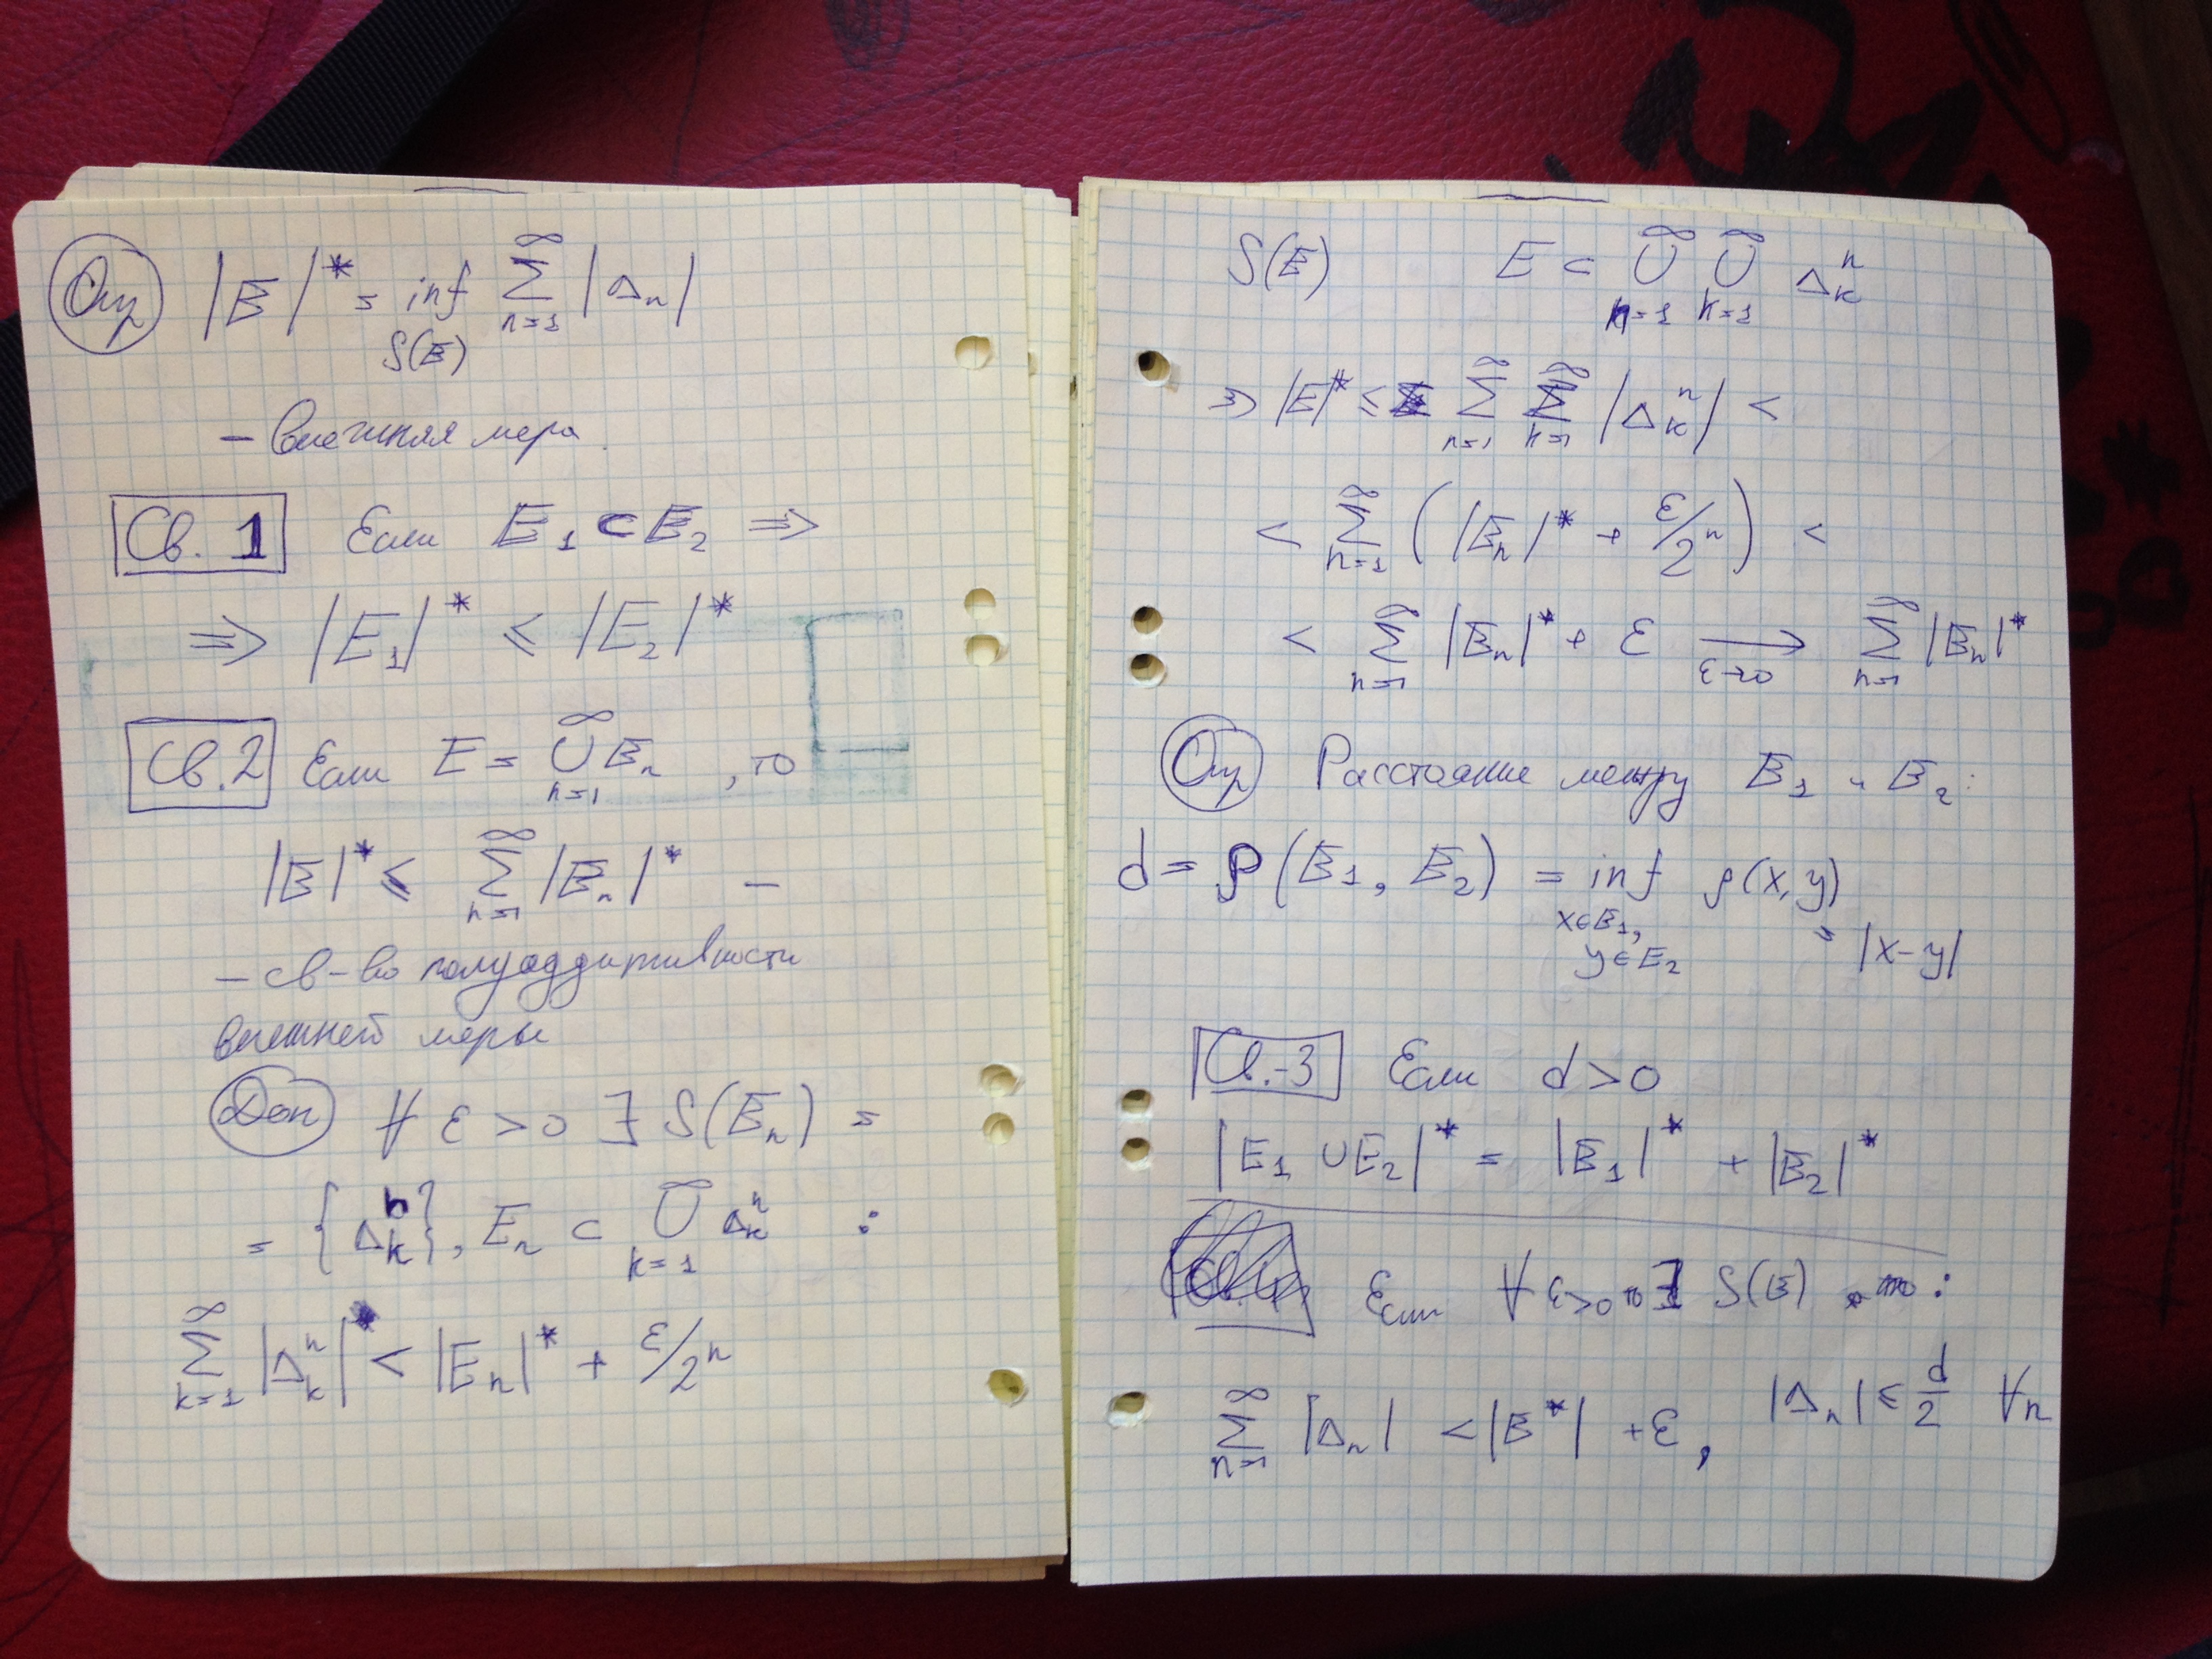 Опр |E|* = inf ∑_{n=1}^{∞} |Δ_n|
S(E)
— внешняя мера.
Св. 1 Если E_1 ⊂ E_2 ⇒
⇒ |E_1|* ≤ |E_2|*
Св. 2 Если E = ∪_{n=1}^{∞} E_n , то
|E|* ≤ ∑_{n=1}^{∞} |E_n|* —
— св-во полуаддитивности
внешней меры
Док ∀ ε > 0 ∃ S(E_n) =
= {Δ_k^n}, E_n ⊂ ∪_{k=1}^{∞} Δ_k^n :
∑_{k=1}^{∞} |Δ_k^n| < |E_n|* + ε/2^n
S(E) E ⊂ ∪_{n=1}^{∞} ∪_{k=1}^{∞} Δ_k^n
⇒ |E|* ≤ ∑_{n=1}^{∞} ∑_{k=1}^{∞} |Δ_k^n| <
< ∑_{n=1}^{∞} ( |E_n|* + ε/2^n ) <
< ∑_{n=1}^{∞} |E_n|* + ε →_{ε→0} ∑_{n=1}^{∞} |E_n|*
Опр Расстояние между E_1 и E_2:
d = ρ(E_1, E_2) = inf ρ(x,y)
x∈E_1, y∈E_2 = |x-y|
Св.-3 Если d>0
|E_1 ∪ E_2|* = |E_1|* + |E_2|*
Если ∀ ε>0 ∃ S(E) :
∑_{n=1}^{∞} |Δ_n| < |E*| + ε, |Δ_n| ≤ d/2 ∀n